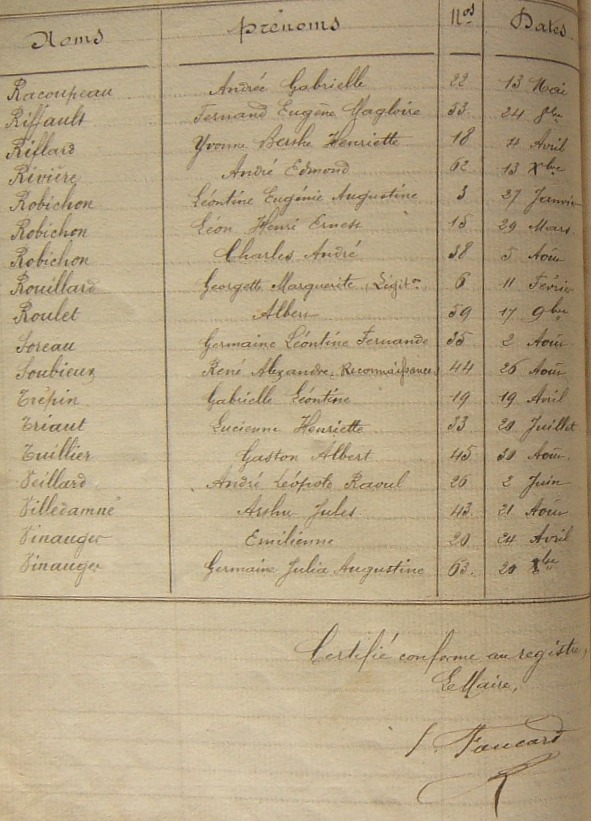 Noms Prénoms Nos Dates
Racoupeau Andrée Gabrielle 22 13 Mai
Riffault Fernand Eugène Magloire 53 24 8bre
Riflard Yvonne Berthe Henriette 18 4 Avril
Rivière André Edmond 62 13 Xbre
Robichon Léontine Eugénie Augustine 3 27 Janvier
Robichon Léon Henri Ernest 15 29 Mars
Robichon Charles André 38 5 Août
Rouillard Georgette Marguerite, Légiton 6 11 Février
Roulet Albert 59 17 9bre
Soreau Germaine Léontine Fernande 35 2 Août
Soubieux René Alexandre, Reconnaissance 44 26 Août
Trépin Gabrielle Léontine 19 19 Avril
Triaut Lucienne Henriette 33 20 Juillet
Tuillier Gaston Albert 45 30 Août
Veillard André Léopold Raoul 26 2 Juin
Villedamné Arthur Jules 43 21 Août
Vinauger Emilienne 20 24 Avril
Vinauger Germaine Julia Augustine 63 20 Xbre
Certifié conforme au registre,
Le Maire,
Foucard